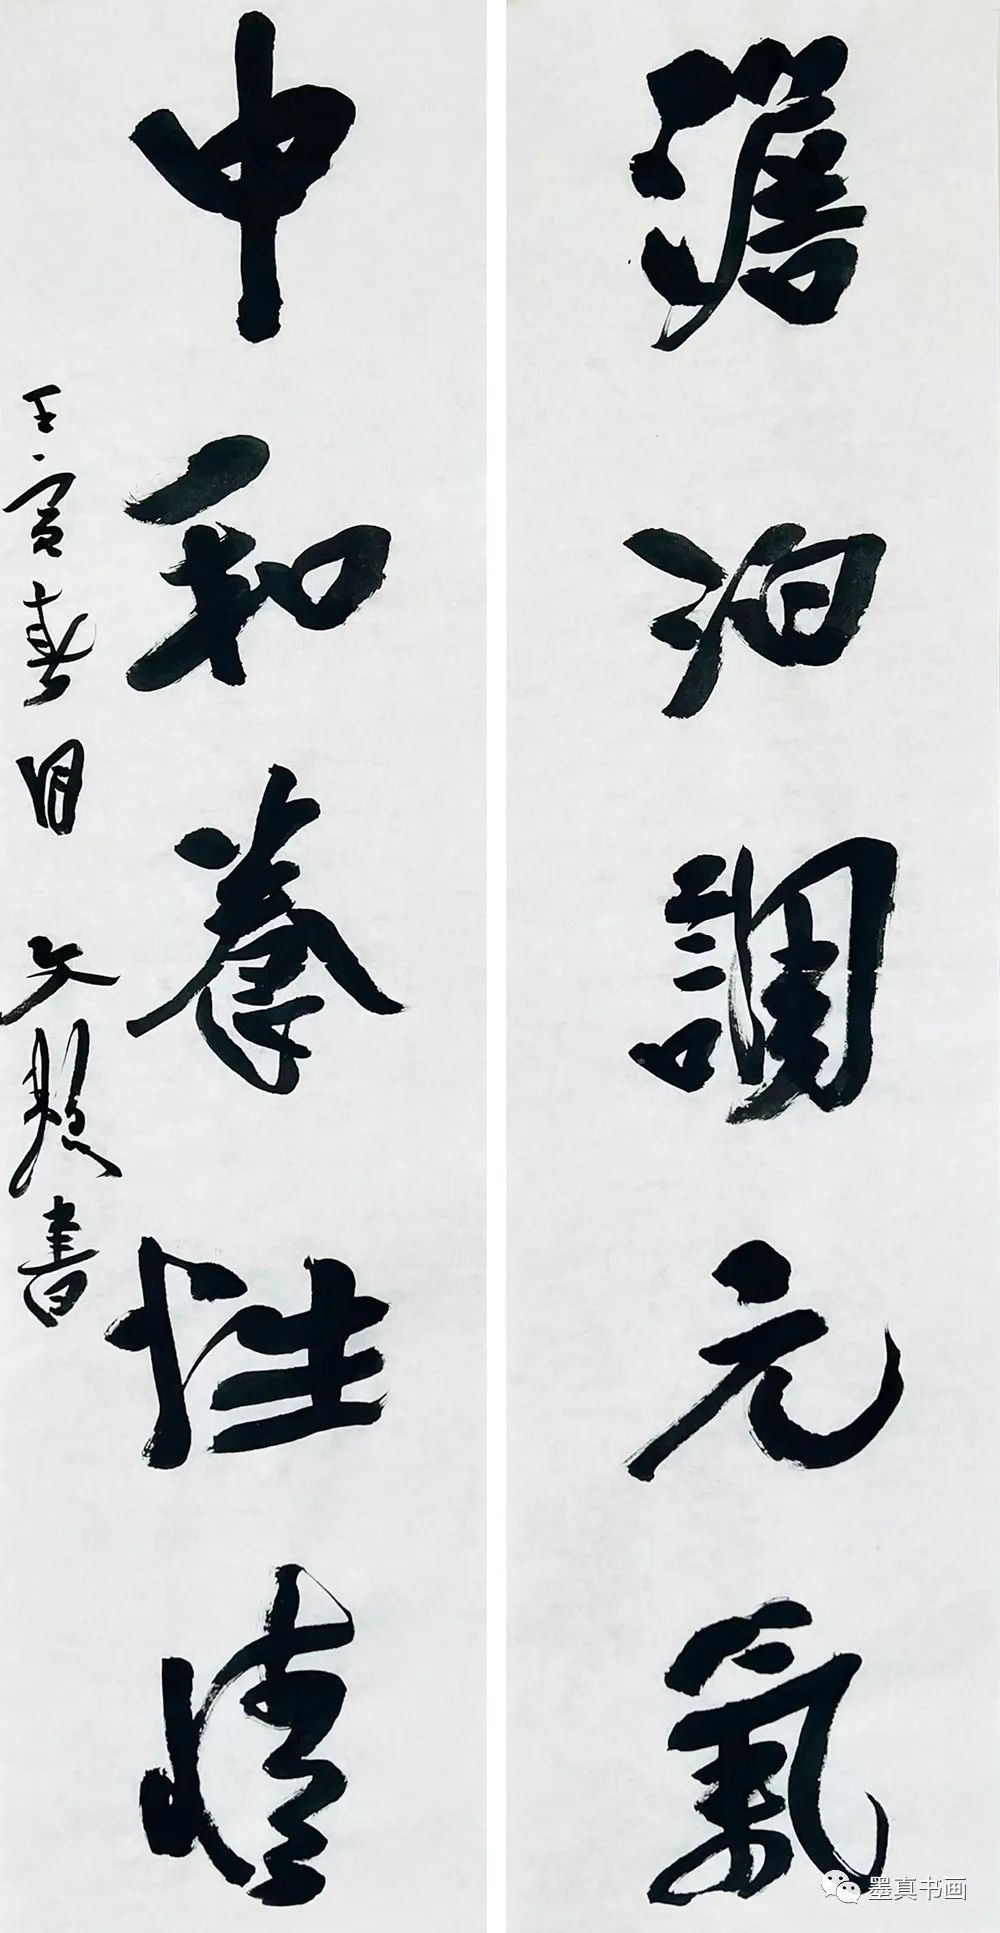 澹泊調元氣
中和養性情
壬寅春月文　書
墨真书画